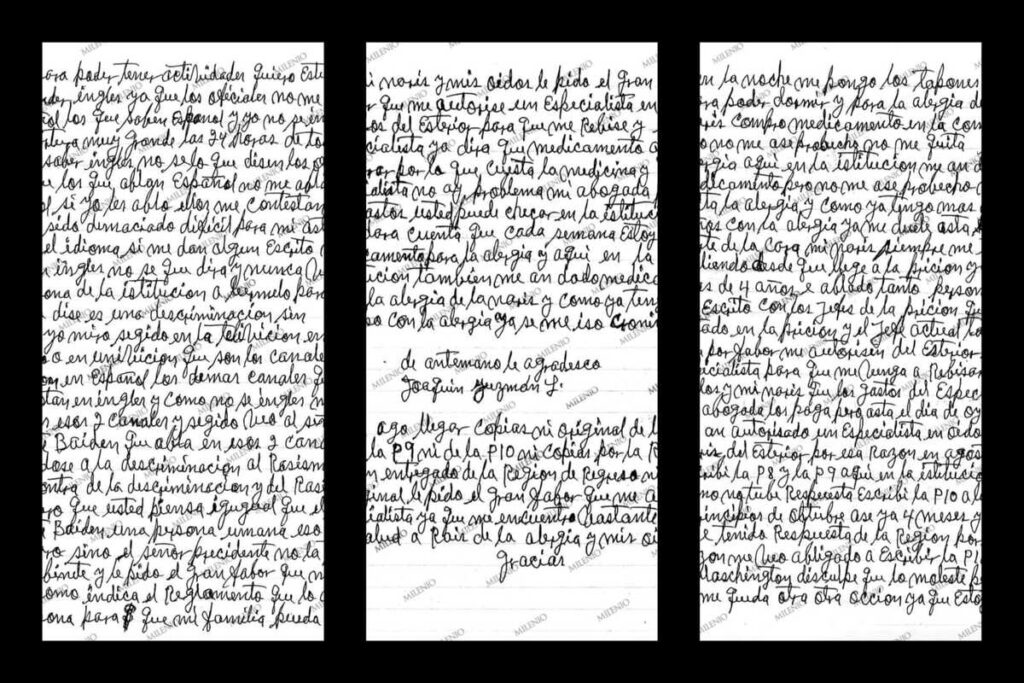 ara poder tener actividades quiero Estu
nder ingles ya que los oficiales no me
ñol los que saben Español y yo no se in
rtura muy grande las 24 horas de to
saber ingles no se lo que disen los o
e los que ablan Español no me abla
l si yo les ablo ellos me contestan
sido demaciado dificil para mi ast
el idioma si me dan algun Escrito
n ingles no se que dira y nunca
ona de la istitucion a lermelo par
dise es una descriminacion sin
yo miro segido en la telivicion en
o en univicion que son los canale
on en Español los demas canales
tan en ingles y como no se ingles m
esos 2 canales y segido veo al se
Baiden que abla en esos 2 can
dose a la descriminacion al Rasism
ontra de la descriminacion y del Ras
ro que usted piensa igugual que el
Baiden una persona umana eso
ro sino el señor precidente no la
binete y le pido el gran fabor que m
omo indica el Reglamento que lo
ona para que mi familia pueda
i naris y mis oidos le pido el gran
r que me autorise un Especialista en
os del Esterior para que me Rebise y
cialista ya dira que medicamento a
rar por lo que cuesta la medicina y
alista no ay problema mi abogada
astos usted puede checar en la istituc
dara cuenta que cada semana Estoy
camento para la alergia y aqui en la
ucion tambien me an dado medica
la alergia de la naris y como ya ten
so con la alergia ya se me iso cronic
de antemano le agradesco
Joaquin Guzman L.
ago llegar copias ni original de l
la P9 ni de la P10 ni copias por la
n entregado de la Region de Regreso ni
ginal le pido el gran fabor que me a
ialista ya que me encuentro bastante
alud a Rais de la alergia y mis oi
gracias
MILENIO
en la noche me pongo los tapones
ra poder dormir y para la alergia de
ris compro medicamento en la com
o no me ase probecho no me quita
ergia aqui en la istitucion me an d
dicamento pero no me ase probecho
ta la alergia y como ya tengo mas
ños con la alergia ya me duele asta
te de la cara mi naris siempre me
liendo desde que llege a la pricion y
s de 4 años e ablado tanto person
Escrito con los Jefes de la pricion que
tado en la pricion y el Jefe actual
por fabor me autorisen del Esterior
ecialista para que me venga a Rebisar
dos y mi naris que los gastos del Espec
abogada los paga pero asta el dia de oy
an autorisado un Especialista en oido
ris del Esterior por esa Razon en agos
cribi la P8 y la P9 aqui en la istituci
mo no tube Respuesta Escribi la P10 a l
rincipios de Obtubre ase ya 4 meses y
e tenido Respuesta de la Region por
zon me veo obligado a Escribir la P1
Waschington disculpe que lo moleste p
me queda otra otra occion ya que Estoy